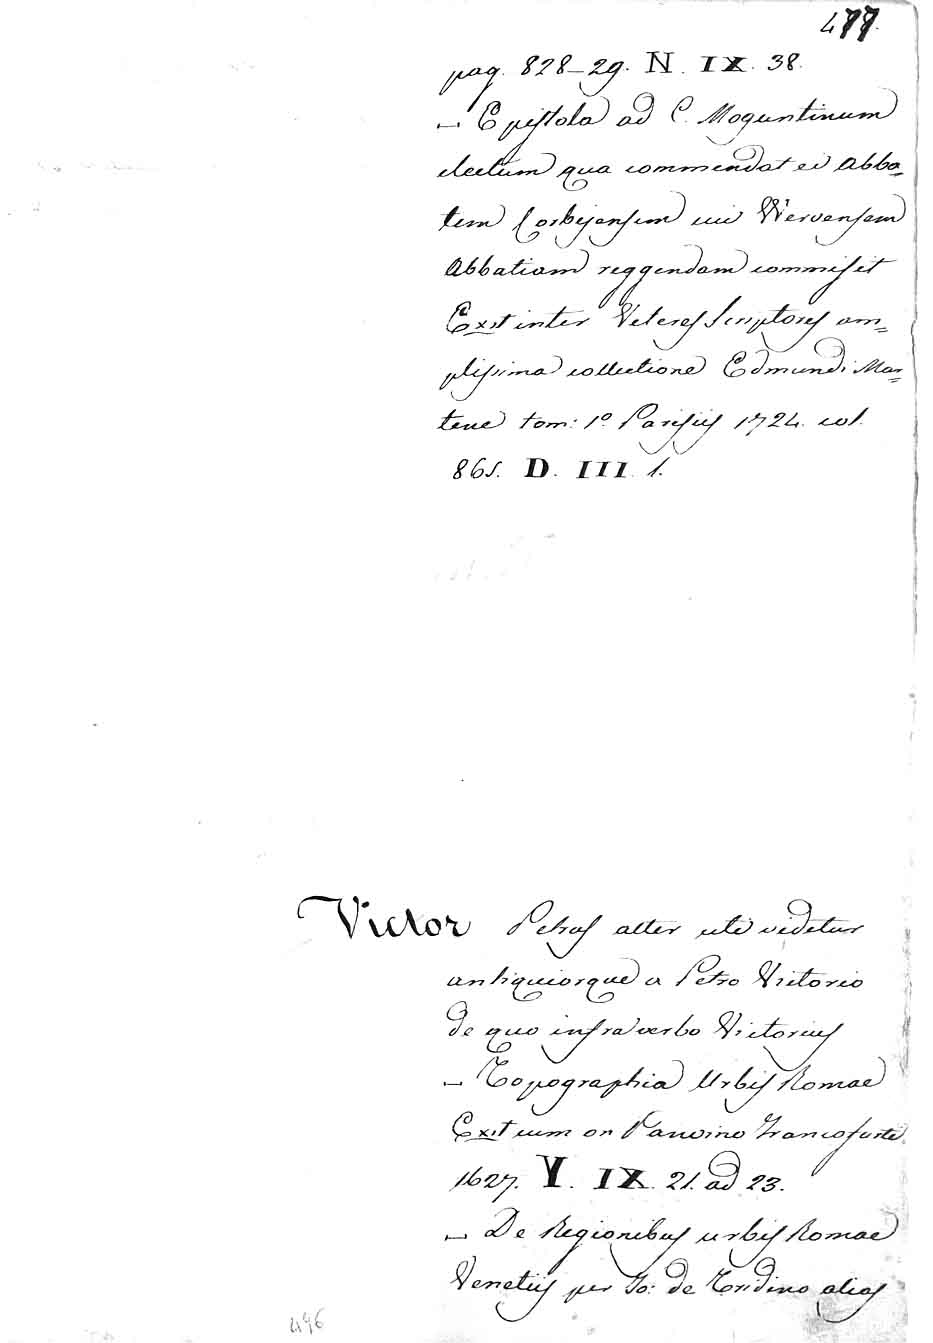 477.
pag. 828-29. N. IX. 38.
– Epistola ad C. Moguntinum
electum qua commendat ei Abba=
tem Corbijensem cui Wervensem
Abbatiam reggendam commisit
Exit inter Veteres Scriptores am=
plissima collectione Edmundi Mar=
tene tom: 1º Parisiis 1724. col.
865. D. III. 1.
Victor Petrus alter uti videtur
antiquiorque a Petro Victorio
de quo infra verbo Victorius
– Topographia Urbis Romae
Exit cum on Panvino Francofurti
1627. Y. IX. 21. ad 23.
– De Regionibus urbis Romae
Venetiis per Jo: de Tridino alias
496